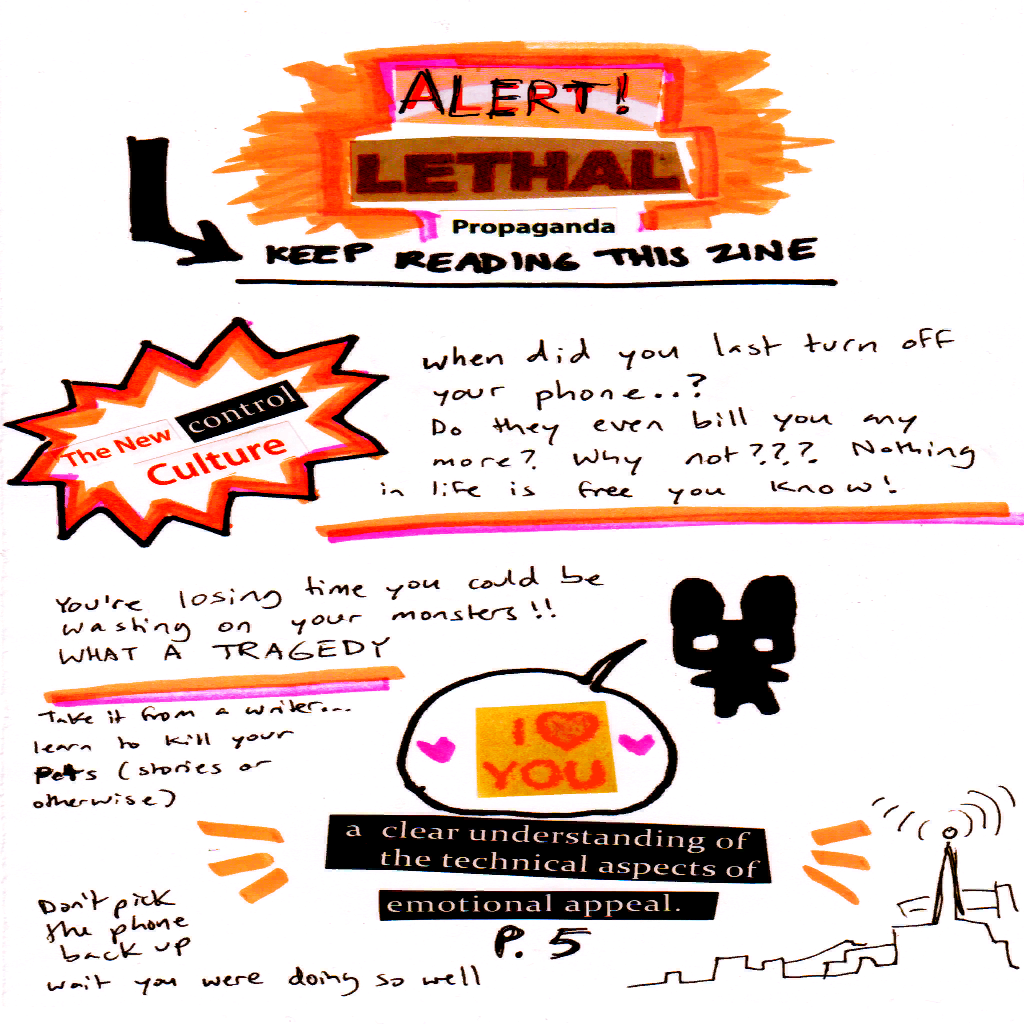 ALERT!
LETHAL
Propaganda
KEEP READING THIS ZINE
The New control
Culture
when did you last turn off
your phone...?
Do they even bill you any
more? Why not???. Nothing
in life is free you know!
You're losing time you could be
wasting on your monsters!!
WHAT A TRAGEDY
Take it from a writer...
learn to kill your
Pets (stories or
otherwise)
I ♥
YOU
a clear understanding of
the technical aspects of
emotional appeal.
P. 5
Don't pick
the phone
back up
wait you were doing so well